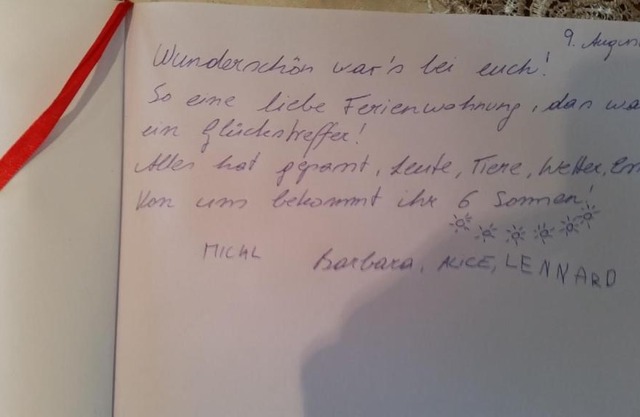 9. Augus
Wunderschön war's bei euch!
So eine liebe Ferienwohnung, das wa
ein Glückstreffer!
Alles hat gepasst, Leute, Tiere, Wetter,
Von uns bekommt ihr 6 Sonnen!
MICHL Barbara, ALICE, LENNARD